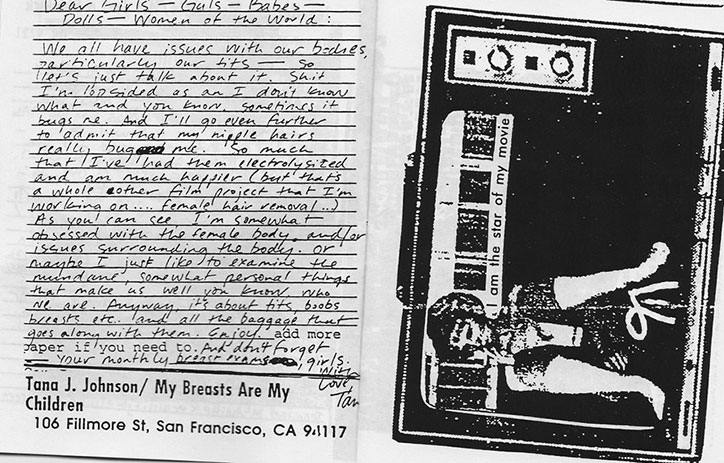 Dear Girls — Gals — Babes —
Dolls — Women of the World:
We all have issues with our bodies,
particularly our tits — so
let's just talk about it. Shit
I'm lopsided as an I don't know
what and you know, sometimes it
bugs me. And I'll go even further
to admit that my nipple hairs
really bug me. So much
that I've had them electrolysized
and am much happier (but that's
a whole other film project that I'm
working on.... female hair removal...)
As you can see I'm somewhat
obsessed with the female body and/or
issues surrounding the body. Or
maybe I just like to examine the
mundane, somewhat personal things
that make us well you know, who
we are. Anyway, it's about tits boobs
breasts etc. and all the baggage that
goes along with them. Enjoy. add more
paper if you need to. And don't forget
your monthly breast exams, girls.
With
Love,
Tan
Tana J. Johnson/ My Breasts Are My
Children
106 Fillmore St, San Francisco, CA 94117
I am the star of my movie